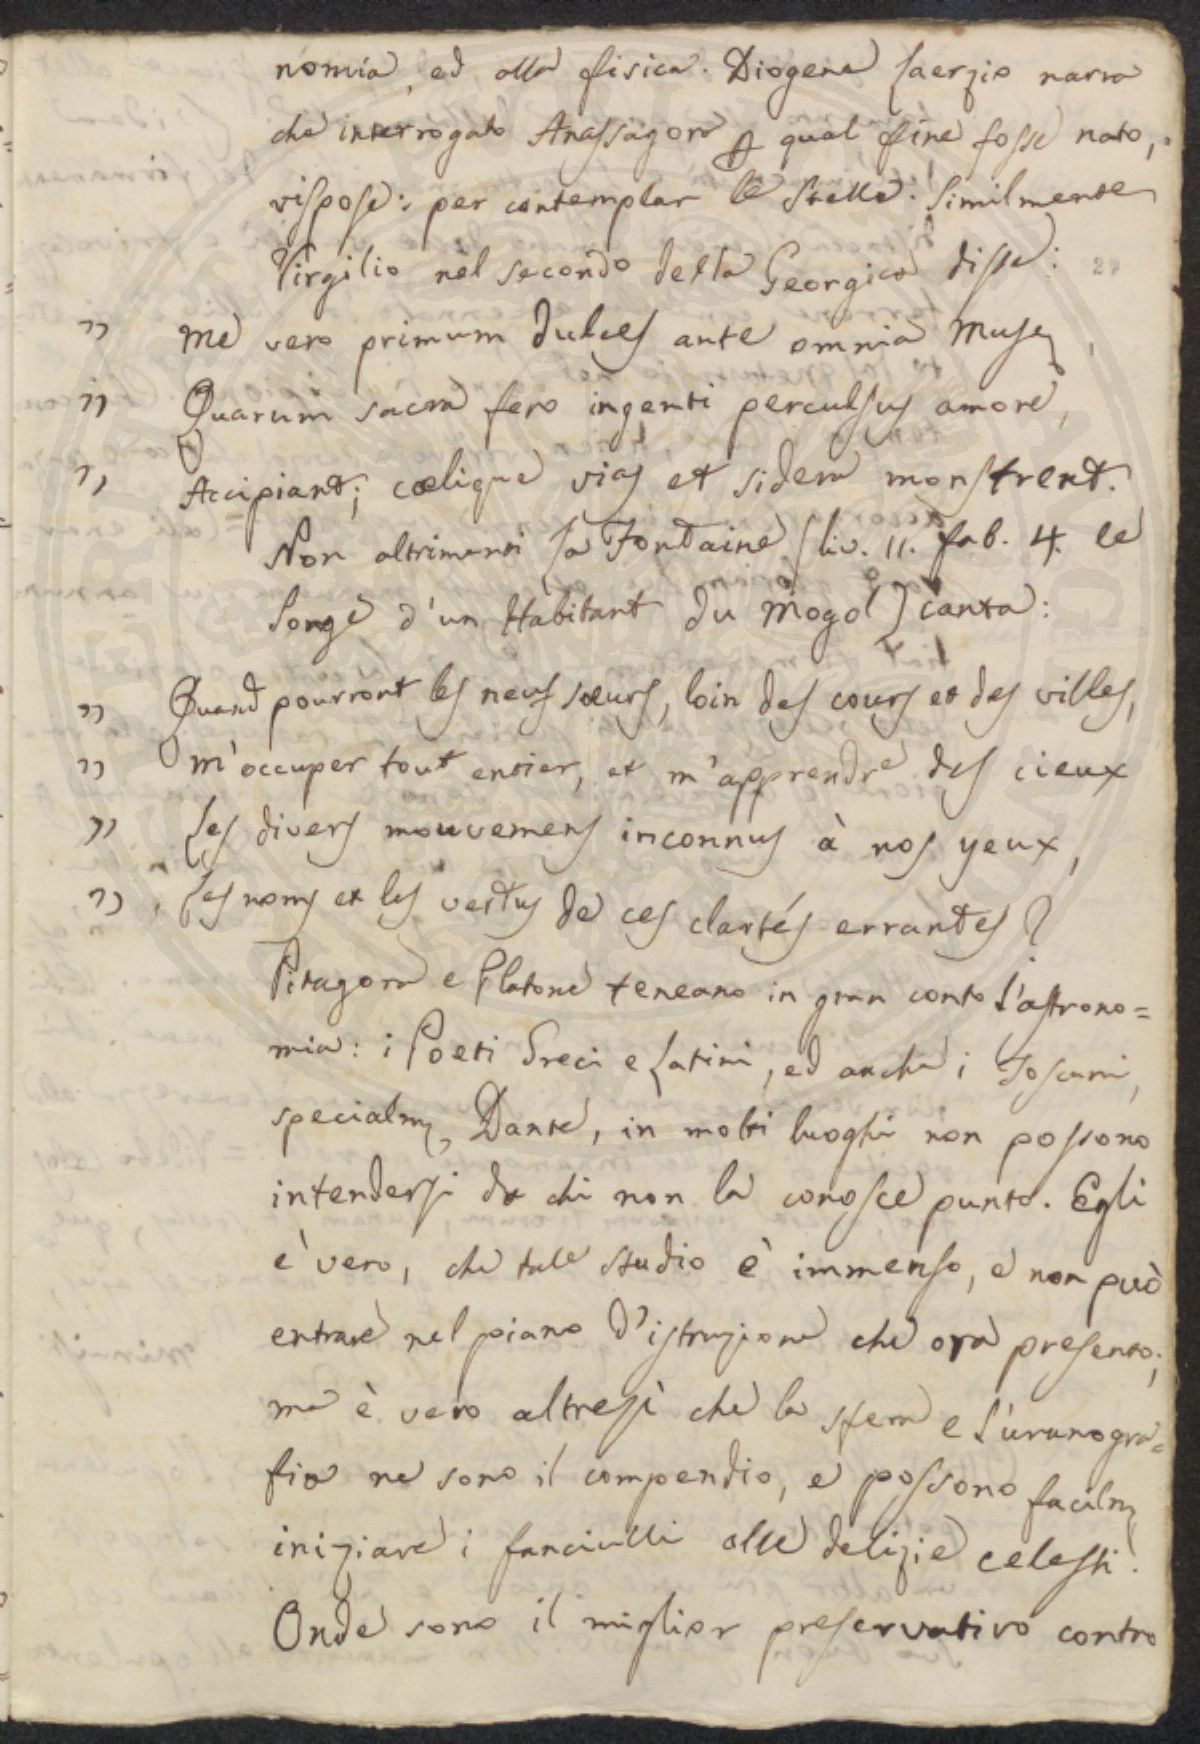 nomia, ed alla fisica. Diogene Laerzio narra
che interrogato Anassagora p qual fine fosse nato,
rispose: per contemplar le stelle. Similmente
Virgilio nel secondo della Georgica disse:
" Me vero primum dulces ante omnia Musę,
" Quarum sacra fero ingenti perculsus amore,
" Accipiant; cœlique vias et sidera monstrent.
Non altrimenti La Fontaine (liv. 11. fab. 4. le
Songe d'un Habitant du Mogol) canta:
" Quand pourront les neuf sœurs, loin des cours et des villes,
" M'occuper tout entier, et m'apprendre des cieux
" Les divers mouvemens inconnus à nos yeux,
" Les noms et les vertus de ces clartés errantes?
Pitagora e Platone teneano in gran conto l'astrono=
mia: i Poeti Greci e Latini, ed anche i Toscani,
specialm. Dante, in molti luoghi non possono
intendersi da chi non la conosce punto. Egli
è vero, che tale studio è immenso, e non può
entrare nel piano d'istruzione che ora presento;
ma è vero altresì che la sfera e l'uranogra=
fia ne sono il compendio, e possono facilm.
iniziare i fanciulli alle delizie celesti.
Onde sono il miglior preservativo contro